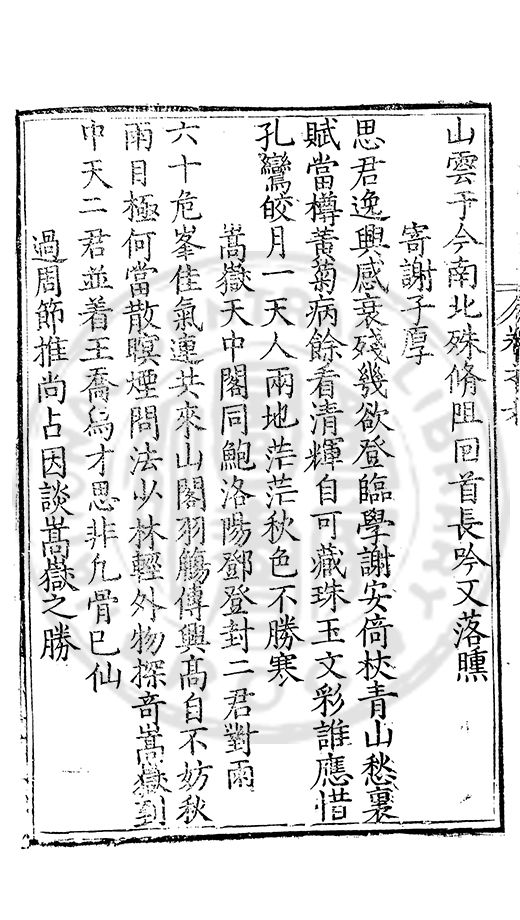 山雲予今南北殊脩阻回首長吟又落曛
寄謝子厚
思君逸興感衰殘幾欲登臨學謝安倚杖青山愁裏
賦當樽黃菊病餘看清輝自可藏珠玉文彩誰應惜
孔鸞皎月一天人兩地茫茫秋色不勝寒
嵩嶽天中閣同鮑洛陽鄧登封二君對雨
六十危峯佳氣連共來山閣羽觴傳興高自不妨秋
雨目極何當散暝煙問法少林輕外物探奇嵩嶽到
中天二君並着王喬舄才思非凡骨已仙
過周節推尚占因談嵩嶽之勝